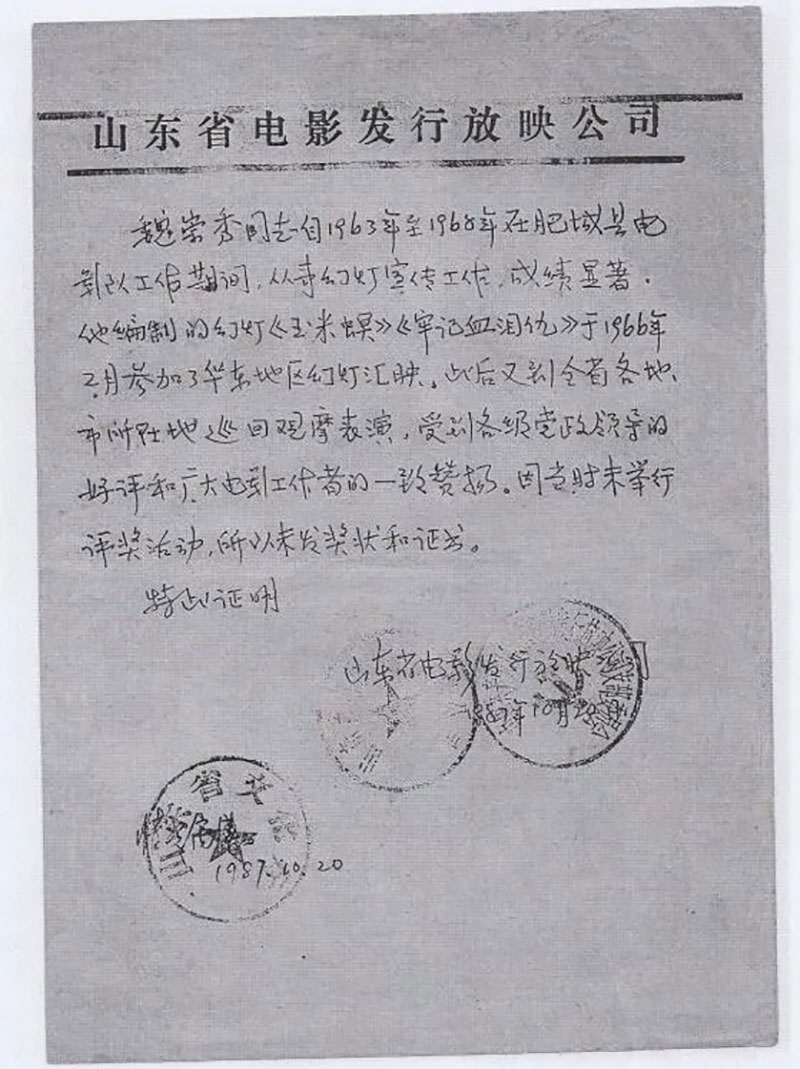 山东省电影发行放映公司
魏崇秀同志自1963年至1968年在肥城县电
影队工作期间，从事幻灯宣传工作，成绩显著。
他编制的幻灯《玉米螟》《牢记血泪仇》于1966年
2月参加了华东地区幻灯汇映。此后又到全省各地、
市所在地巡回观摩表演，受到各级党政领导的
好评和广大电影工作者的一致赞扬。因当时未举行
评奖活动，所以未发奖状和证书。
特此证明
山东省电影发行放映
年10月20
省文
1987.10.20